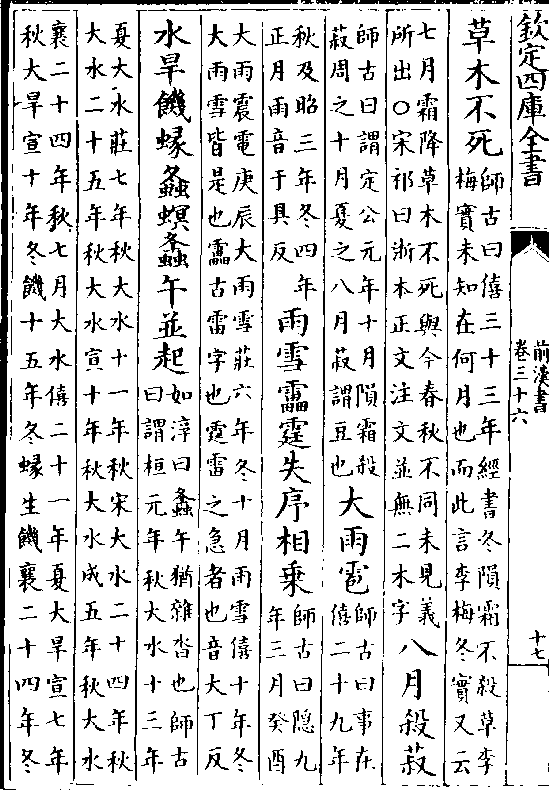 欽定四庫全書
前漢書
卷三十六
十七
草木不死
師古曰僖三十三年經書冬隕霜不殺草李
梅實未知在何月也而此言李梅冬實又云
七月霜降草木不死與今春秋不同未見義
所出○宋祁曰浙本正文注文並無二木字
八月殺菽
師古曰謂定公元年十月隕霜殺
菽周之十月夏之八月菽謂豆也
大雨雹
師古曰事在
僖二十九年
秋及昭三年冬四年
正月雨音于具反
雨雪靁霆失序相乗
師古曰隠九
年三月癸酉
大雨震電庚辰大雨雪莊六年冬十月雨雪僖十年冬
大雨雪皆是也靁古雷字也霆雷之急者也音大丁反
水旱饑蝝螽螟螽午並起
如淳曰螽午猶雜沓也師古
曰謂桓元年秋大水十三年
夏大水莊七年秋大水十一年秋宋大水二十四年秋
大水二十五年秋大水宣十年秋大水成五年秋大水
襄二十四年秋七月大水僖二十一年夏大旱宣七年
秋大旱宣十年冬饑十五年冬蝝生饑襄二十四年冬